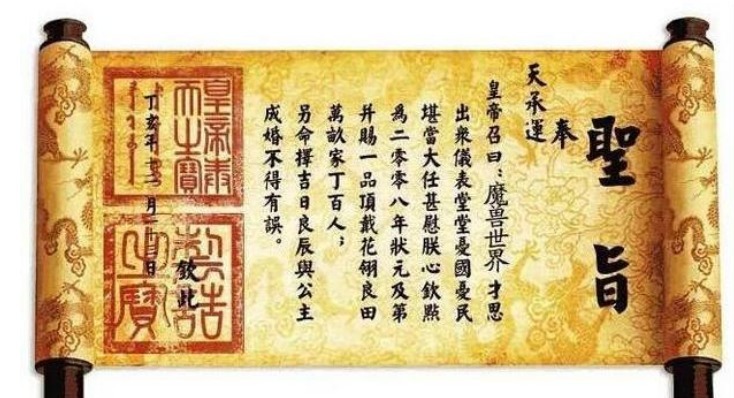 聖旨
奉
天承運
皇帝召曰：魔兽世界才思
出衆儀表堂堂憂國憂民
堪當大任甚慰朕心欽點
爲二零零八年狀元及第
并賜一品頂戴花翎良田
萬畝家丁百人；
另命擇吉日良辰與公主
成婚不得有誤。
欽此
丁亥年十二月日
皇帝奉天之寶
制誥之寶